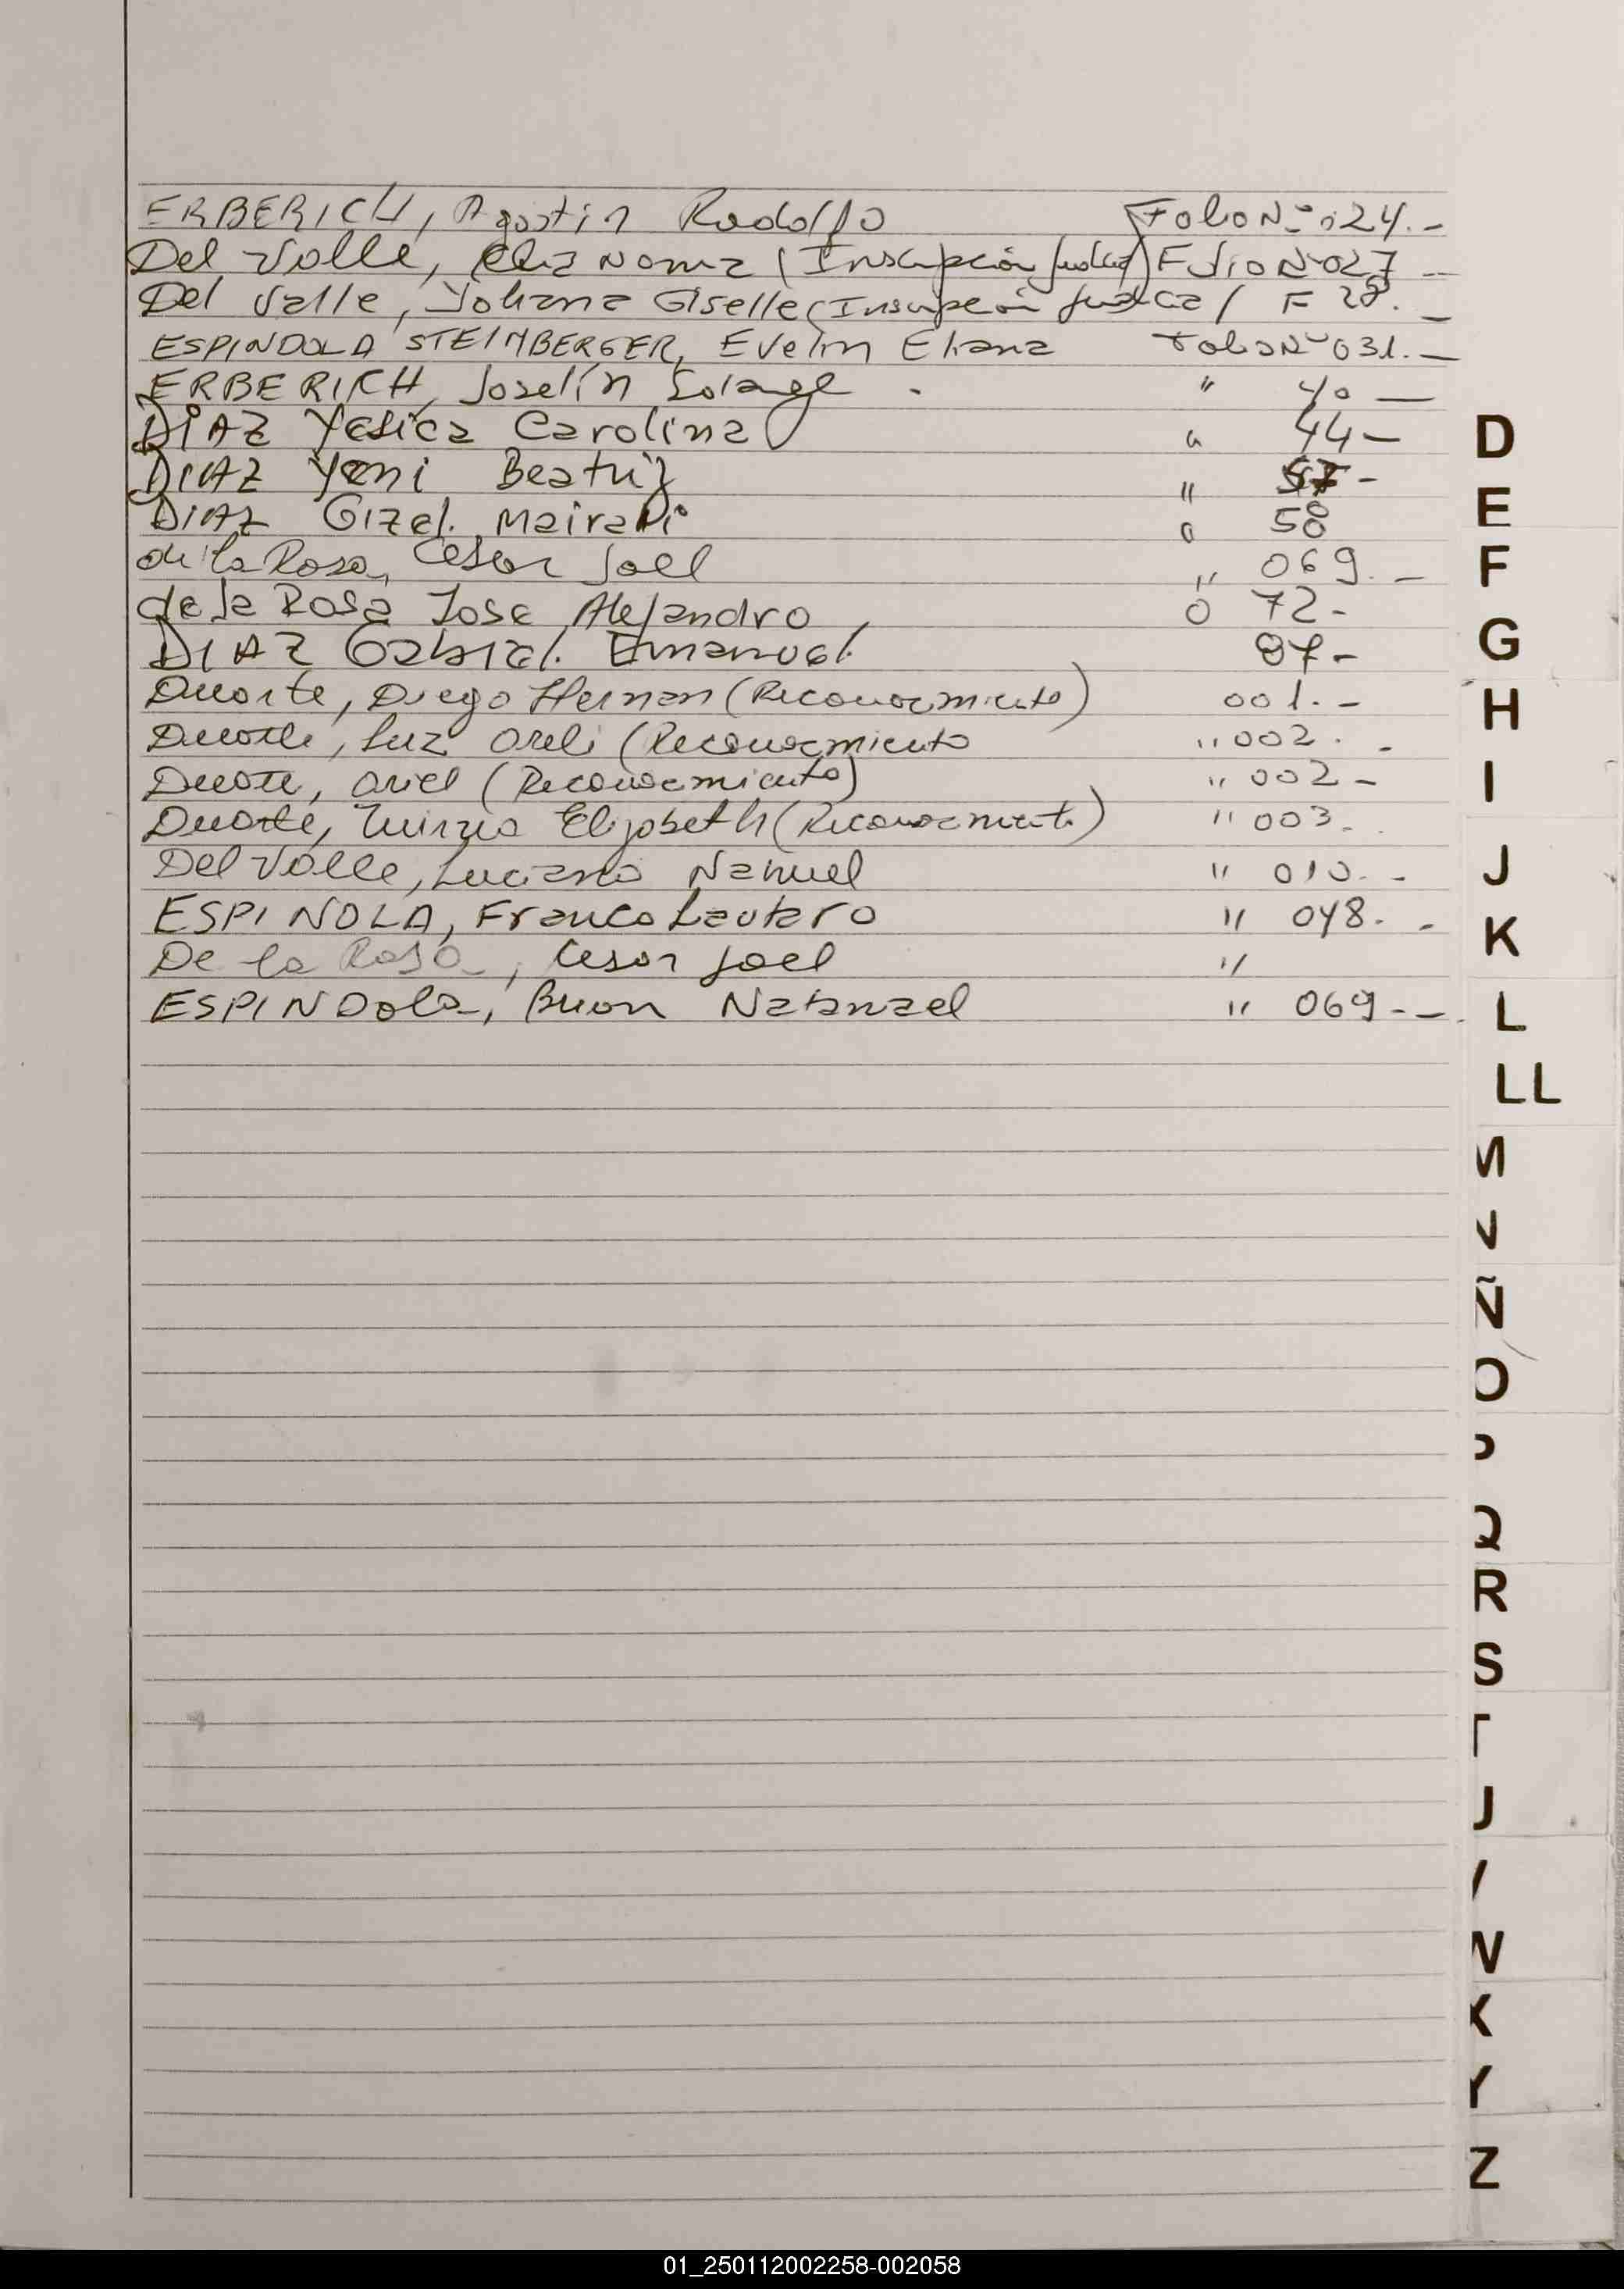 ERBERICH, Agostin Rodolfo Folio Nº 024.-
Del Valle, Norma (Inscripción Judicial) Folio Nº 027 --
Del Valle, Yohana Giselle (Inscripción Judicial) F 28. -
ESPINDOLA STEINBERGER, Evelin Eliana Folio Nº 031. -
ERBERICH, Joselín Solange " 40 -
DIAZ Yesica Carolina " 44 -
DIAZ Yani Beatriz " 57 -
DIAZ Gizel. Mairali " 58
de la Rosa, Cesar Joel " 069. -
de la Rosa Jose Alejandro, " 72 -
DIAZ Gabriel. Emanuel. 87 -
Duarte, Diego Hernan (Reconocimiento) 001. -
Duarte, Luz Oreli (Reconocimiento " 002. -
Duarte, Ariel (Reconocimiento) " 002 -
Duarte, Elizabeth (Reconocimiento) " 003.
Del Valle, Luciano Nahuel " 010. -
ESPINOLA, Franco Lautaro " 048. -
De la Rosa, Cesar Joel "
ESPINDola, Brian Natanael " 069 - -
D
E
F
G
H
I
J
K
L
LL
Ñ
O
Q
R
S
J
X
Y
Z
01_250112002258-002058